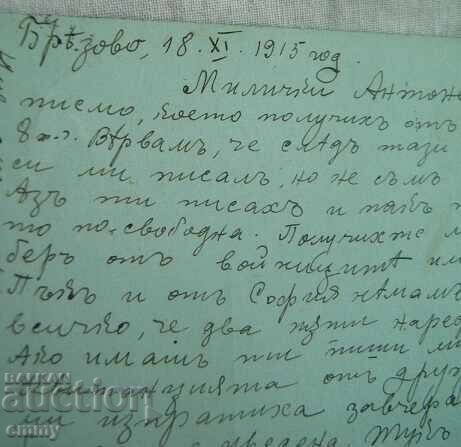 Брѣзово, 18.XI.1915 год.
Милички Антоне
писмо, което получихъ отъ
8 т.г. Вѣрвамъ, че следъ тази
си ми писалъ, но не съмъ
Азъ ти писахъ и пакъ
то по-свободна. Получихте
беръ отъ войницитѣ
Пъкъ и отъ София нѣмамъ
всичко, че два пѫти наред
Ако имашъ ти пиши ми
отъ друг
ми изпратиха завчера
тукъ
БАЛКАН
auction
emmy